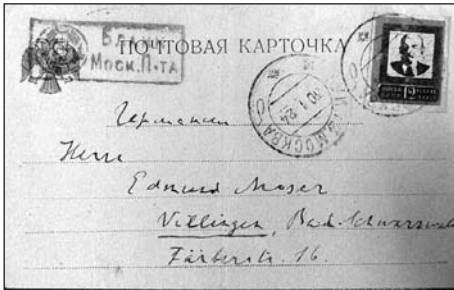 Бланк
Моск. П-та
ПОЧТОВАЯ КАРТОЧКА
МОСКВА
Германия
Herrn
Edmund Moser
Villingen, Bad. Schwarzwald
Färberstr. 16.